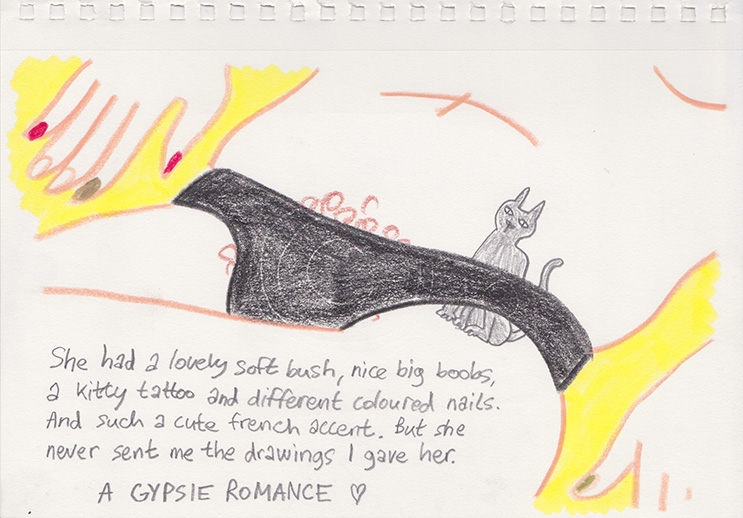 She had a lovely soft bush, nice big boobs,
a kitty tattoo and different coloured nails.
And such a cute french accent. But she
never sent me the drawings I gave her.
A GYPSIE ROMANCE ♡